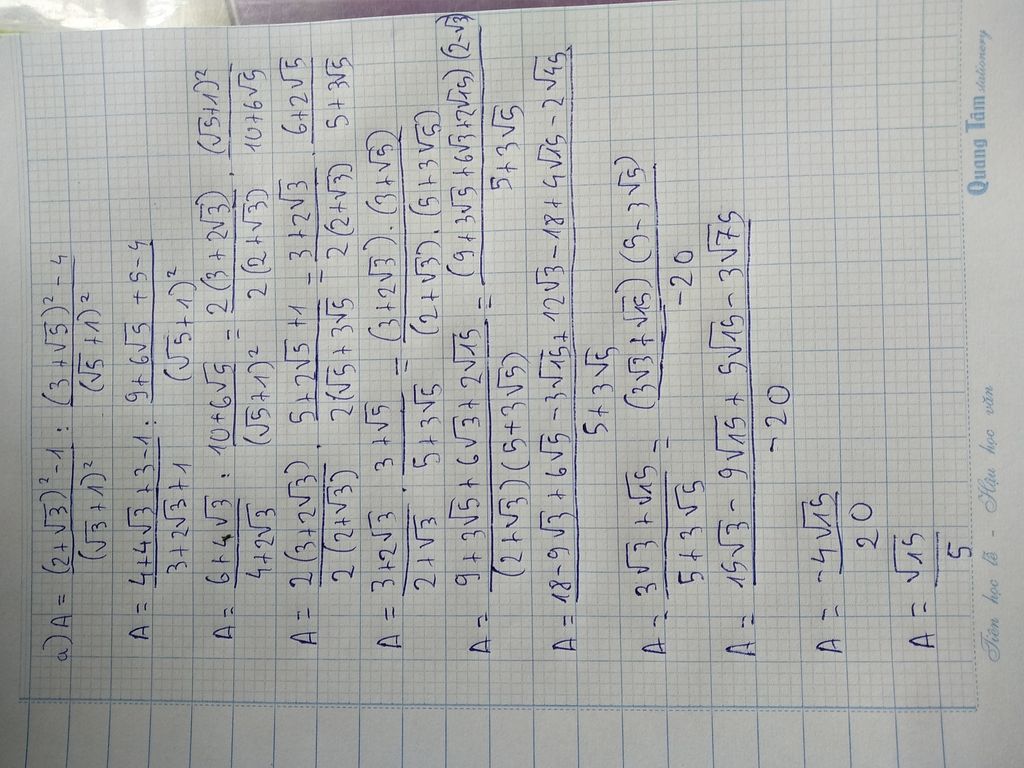 a) A = \frac{(2+\sqrt{3})^2-1}{(\sqrt{3}+1)^2} : \frac{(3+\sqrt{5})^2-4}{(\sqrt{5}+1)^2}
A = \frac{4+4\sqrt{3}+3-1}{3+2\sqrt{3}+1} : \frac{9+6\sqrt{5}+5-4}{(\sqrt{5}+1)^2}
A = \frac{6+4\sqrt{3}}{4+2\sqrt{3}} : \frac{10+6\sqrt{5}}{(\sqrt{5}+1)^2} = \frac{2(3+2\sqrt{3})}{2(2+\sqrt{3})} . \frac{(\sqrt{5}+1)^2}{10+6\sqrt{5}}
A = \frac{2(3+2\sqrt{3})}{2(2+\sqrt{3})} . \frac{5+2\sqrt{5}+1}{2(\sqrt{5}+3\sqrt{5}} = \frac{3+2\sqrt{3}}{2(2+\sqrt{3})} . \frac{6+2\sqrt{5}}{5+3\sqrt{5}}
A = \frac{3+2\sqrt{3}}{2+\sqrt{3}} . \frac{3+\sqrt{5}}{5+3\sqrt{5}} = \frac{(3+2\sqrt{3}).(3+\sqrt{5})}{(2+\sqrt{3}).(5+3\sqrt{5})}
A = \frac{9+3\sqrt{5}+6\sqrt{3}+2\sqrt{15}}{(2+\sqrt{3})(5+3\sqrt{5})} = \frac{(9+3\sqrt{5}+6\sqrt{3}+2\sqrt{15})(2-\sqrt{3})}{5+3\sqrt{5}}
A = \frac{18-9\sqrt{3}+6\sqrt{5}-3\sqrt{15}+12\sqrt{3}-18+4\sqrt{15}-2\sqrt{45}}{5+3\sqrt{5}}
A = \frac{3\sqrt{3}+\sqrt{15}}{5+3\sqrt{5}} = \frac{(3\sqrt{3}+\sqrt{15})(5-3\sqrt{5})}{-20}
A = \frac{15\sqrt{3}-9\sqrt{15}+5\sqrt{15}-3\sqrt{75}}{-20}
A = \frac{-4\sqrt{15}}{20}
A = \frac{\sqrt{15}}{5}
Tiên học lễ - Hậu học văn
Quang Tâm stationery